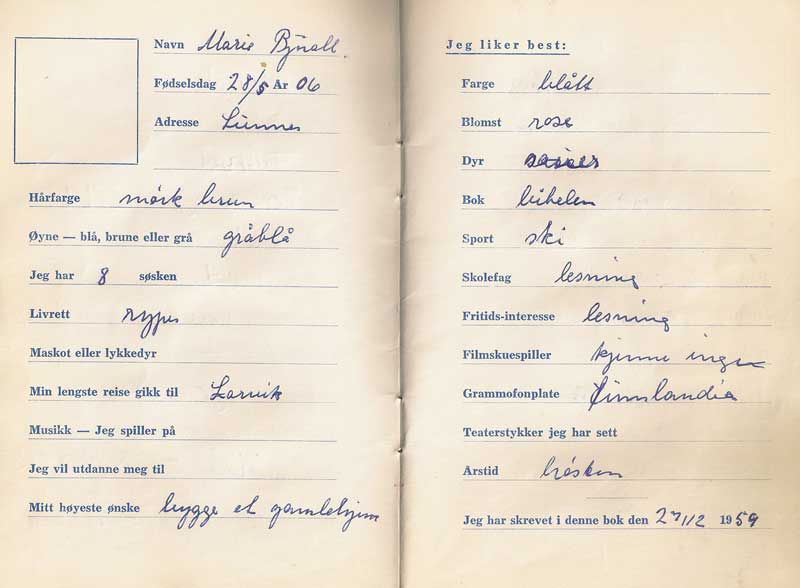 Navn Marie
Fødselsdag 28/5 År 06
Adresse
Hårfarge mørk brun
Øyne — blå, brune eller grå gråblå
Jeg har 8 søsken
Livrett rype
Maskot eller lykkedyr
Min lengste reise gikk til Larvik
Musikk — Jeg spiller på
Jeg vil utdanne meg til
Mitt høyeste ønske bygge et gamlehjem
Jeg liker best:
Farge blått
Blomst rose
Dyr
Bok bibelen
Sport ski
Skolefag lesning
Fritids-interesse lesning
Filmskuespiller kjenne ingen
Grammofonplate Finnlandia
Teaterstykker jeg har sett
Årstid høsten
Jeg har skrevet i denne bok den 27/12 1959